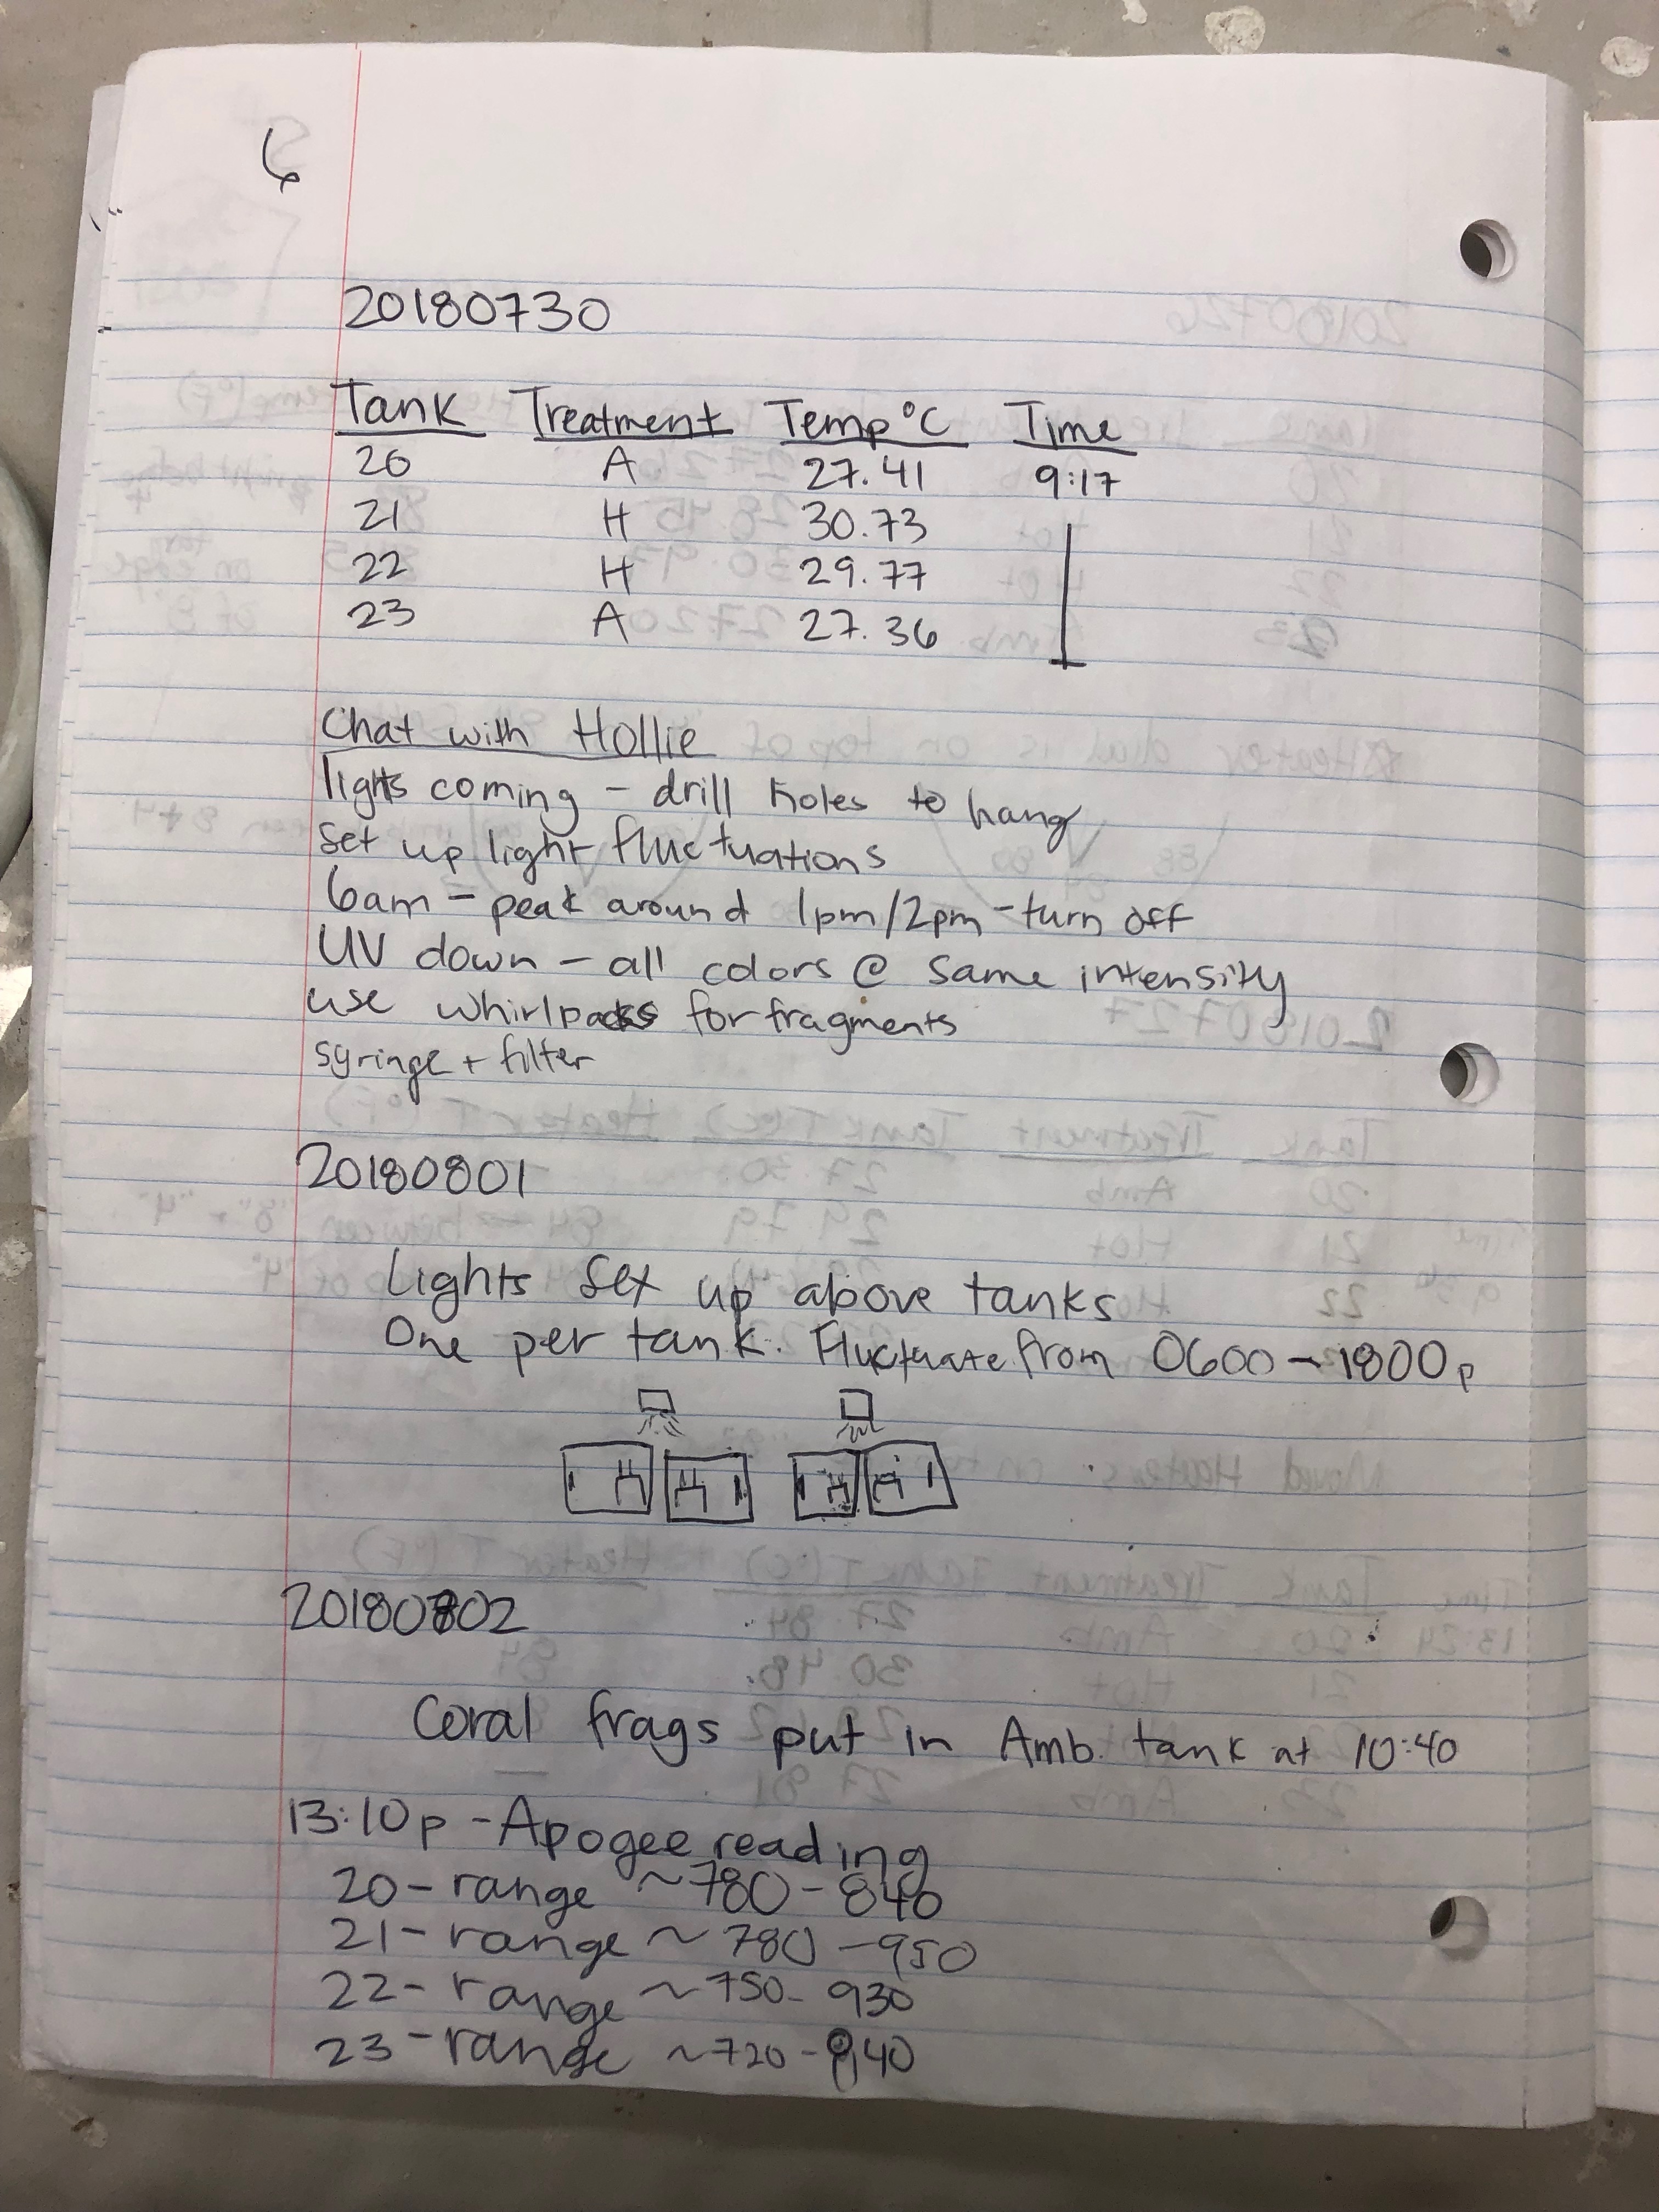 6
20180730
Tank Treatment Temp °C Time
20 A 27.41 9:17
21 H 30.73
22 H 29.77
23 A 27.36
Chat with Hollie
lights coming - drill holes to hang
set up light fluctuations
6am - peak around 1pm/2pm - turn off
UV down - all colors @ same intensity
use whirlpacks for fragments
syringe + filter
20180801
Lights set up above tanks
One per tank. Fluctuate from 0600 - 1800p
20180802
Coral frags put in Amb. tank at 10:40
13:10p - Apogee reading
20 - range ~780 - 840
21 - range ~ 780 - 950
22 - range ~ 750 - 930
23 - range ~720 -